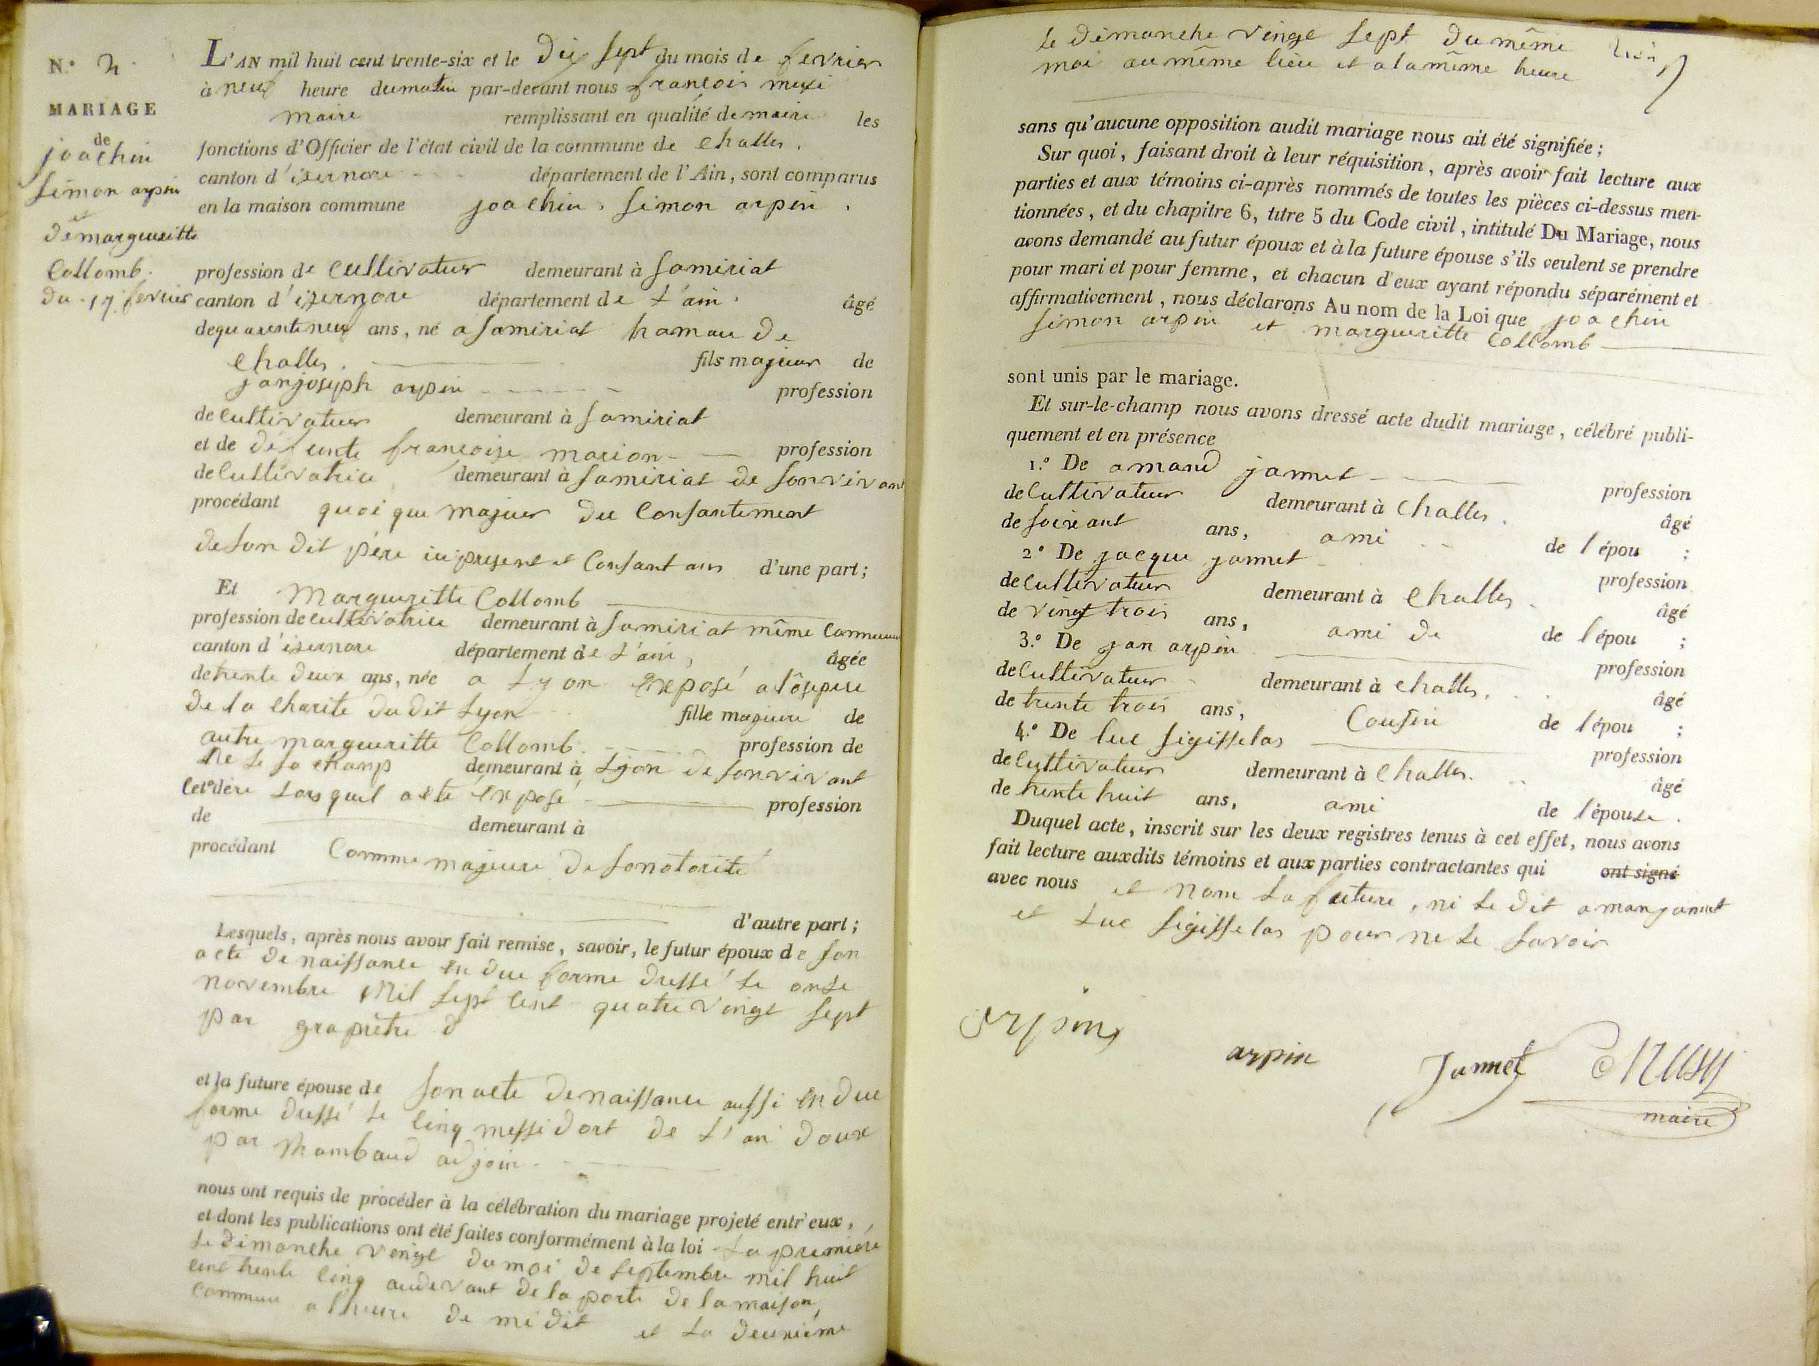 N.° 2.
MARIAGE
de
joachin
Simon arpin
et
de margueritte
Collomb.
du 17 fevrier
L'AN mil huit cent trente-six et le Dix Sept du mois de fevrier
à neuf heure du matin par-devant nous françois
maire remplissant en qualité de maire les
fonctions d'Officier de l'état civil de la commune de Challes,
canton d'isernore département de l'Ain, sont comparus
en la maison commune joachin Simon arpin.
profession de Cultivateur demeurant à Samiriat
canton d'isernore département de L'ain. âgé
de quarenteneuf ans, né a Samiriat hamau De
Challes. fils majeur de
janjoseph arpin profession
de Cultivateur demeurant à Samiriat
et de défunte françoise marion profession
de Cultivatrice demeurant à Samiriat de Sonvivant
procédant quoique majeur du Consantement
de Son dit père ici présent et Consantans d'une part;
Et Margueritte Collomb
profession de cultivatrice demeurant à Samiriat même Commune
canton d'isernore département de L'ain, âgée
de trente deux ans, née a Lyon Exposé a l'ôspice
De la Charité dudit Lyon fille majeure de
autre margueritte Collomb. profession de
demeurant à Lyon de Sonvivant
Lorsquel a été Exposé profession
de demeurant à
procédant Comme majeure de Sonotorité
d'autre part;
Lesquels, après nous avoir fait remise, savoir, le futur époux de Son
acte de naissance en due forme dressé le onse
novembre Mil Sept Cent quatre vingt Sept
par graprêtre
et la future épouse de Son acte de naissance aussi en due
forme dressé le Cinq messidort de L'an Doux
par Mambaud adjoin.
nous ont requis de procéder à la célébration du mariage projeté entr'eux,
et dont les publications ont été faites conformément à la loi La première
le dimanche vingt du moi de Septembre mil huit
cent trente Cinq audevant de la porte de la maison,
commune a l'heure de midit et La deuxième
le dimanche vingt Sept du même
moi au même lieu et a la même heure
sans qu'aucune opposition audit mariage nous ait été signifiée;
Sur quoi, faisant droit à leur réquisition, après avoir fait lecture aux
parties et aux témoins ci-après nommés de toutes les pièces ci-dessus men-
tionnées, et du chapitre 6, titre 5 du Code civil, intitulé Du Mariage, nous
avons demandé au futur époux et à la future épouse s'ils veulent se prendre
pour mari et pour femme, et chacun d'eux ayant répondu séparément et
affirmativement, nous déclarons Au nom de la Loi que joachin
Simon arpin et margueritte Collomb
sont unis par le mariage.
Et sur-le-champ nous avons dressé acte dudit mariage, célébré publi-
quement et en présence
1.° De amand jannet profession
de Cultivateur demeurant à Challes. âgé
de Soixant ans, ami de l'épou ;
2.° De jacque jannet profession
de Cultivateur demeurant à Challes. âgé
de vingt trois ans, ami de de l'épou ;
3.° De jan arpin profession
de Cultivateur demeurant à Challes. âgé
de trente trois ans, Cousin de l'épou ;
4.° De luc Sigisselas profession
de Cultivateur demeurant à Challes. âgé
de trente huit ans, ami de l'épouse.
Duquel acte, inscrit sur les deux registres tenus à cet effet, nous avons
fait lecture auxdits témoins et aux parties contractantes qui ont signé
avec nous et nom La future, ni le dit aman jannet
et Luc Sigisselas pour ne le Savoir
arpin
arpin
Jannet
maire